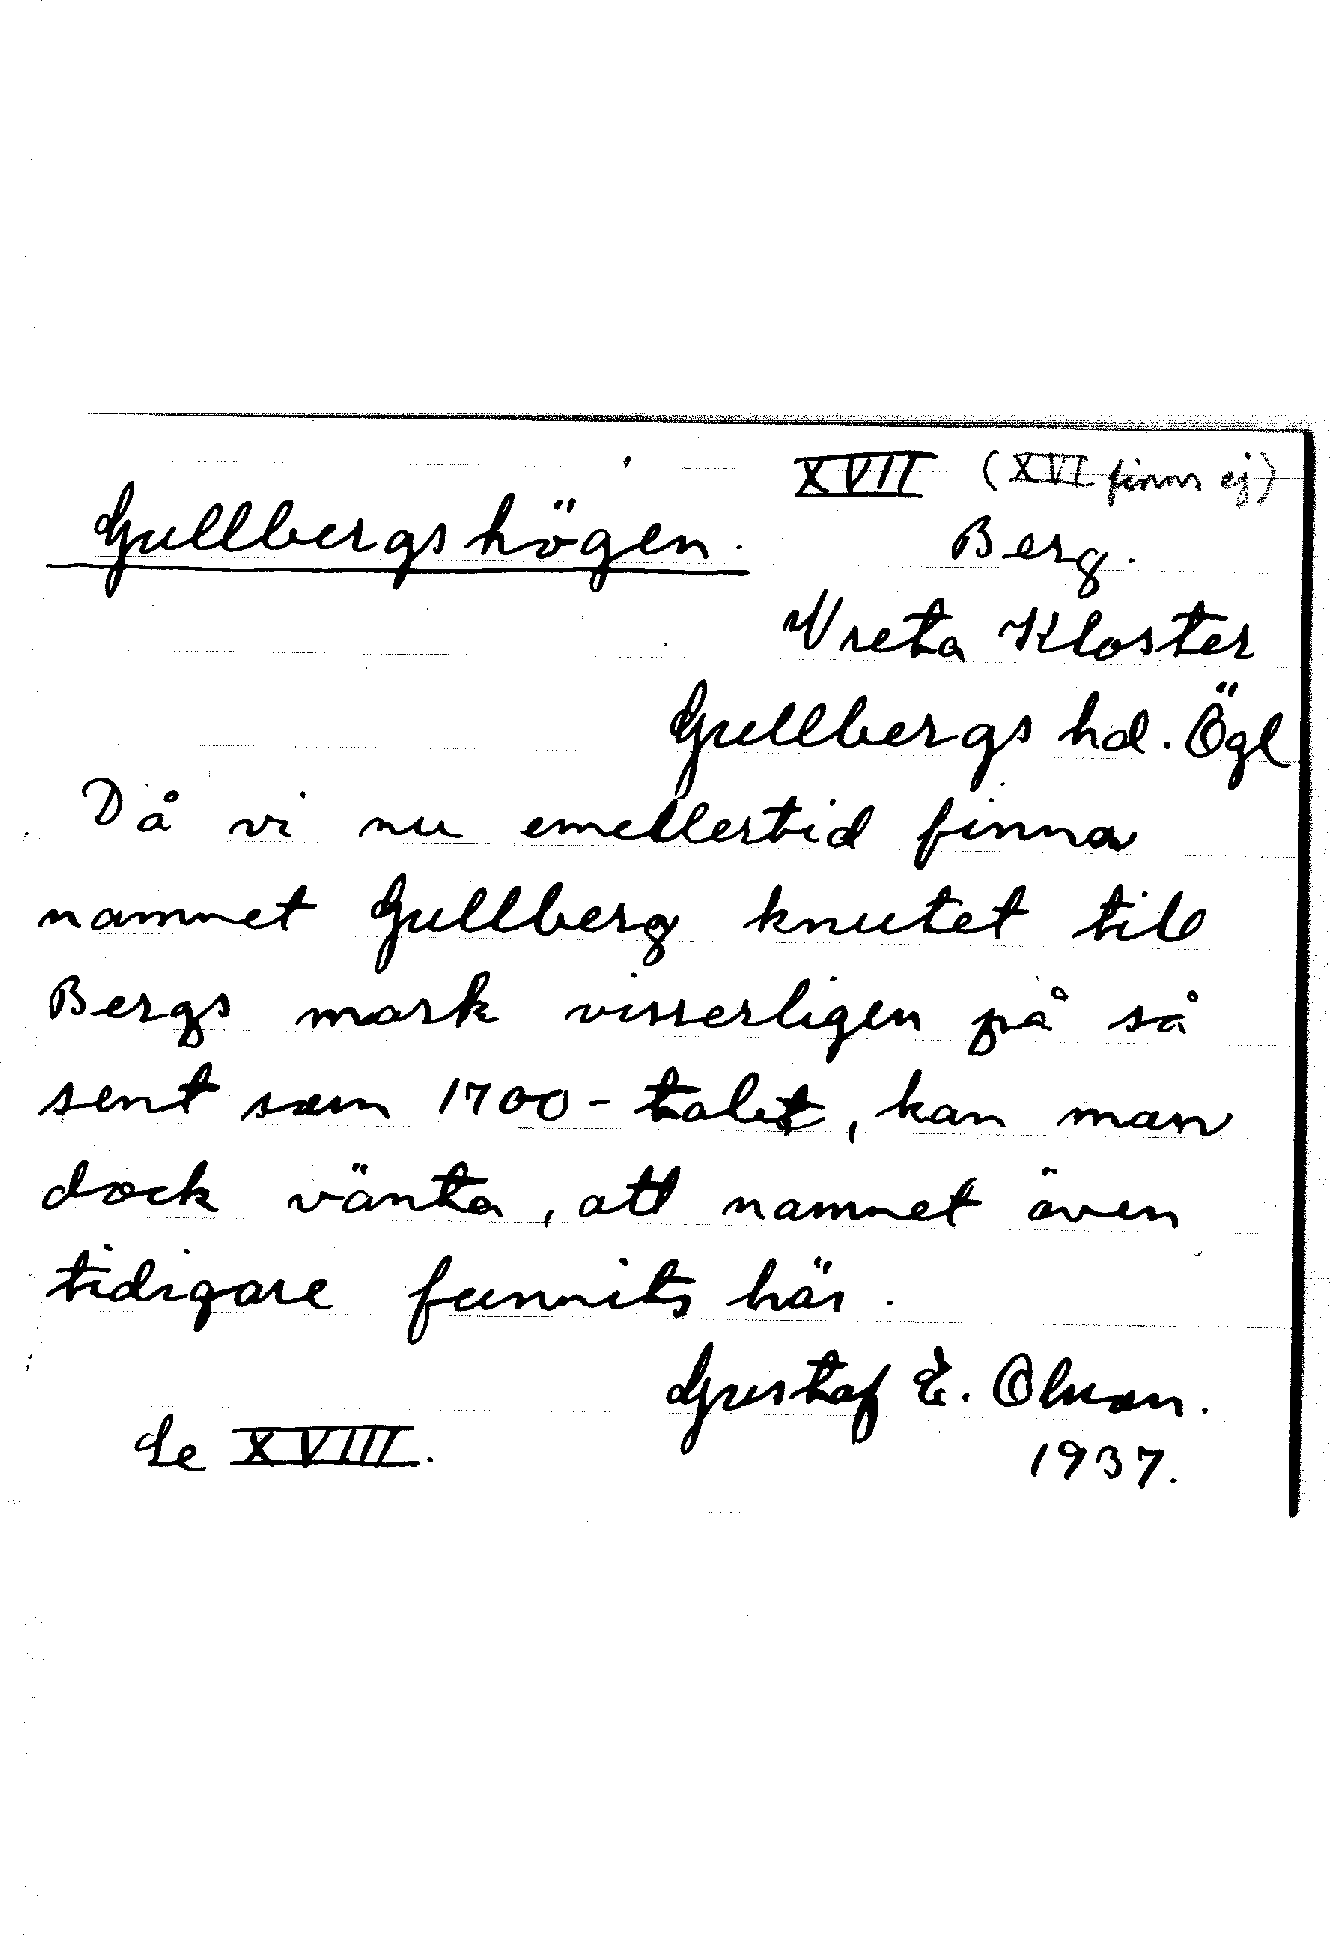 XVII (XVI finns ej)
Gullbergshögen. Berg.
Vreta Kloster
Gullbergs hd. Ögl
Då vi nu emellertid finna
namnet Gullberg knutet till
Bergs mark visserligen på så
sent som 1700-talet, kan man
dock vänta, att namnet även
tidigare funnits här.
Gustaf E. Olsson.
Se XVIII. 1937.